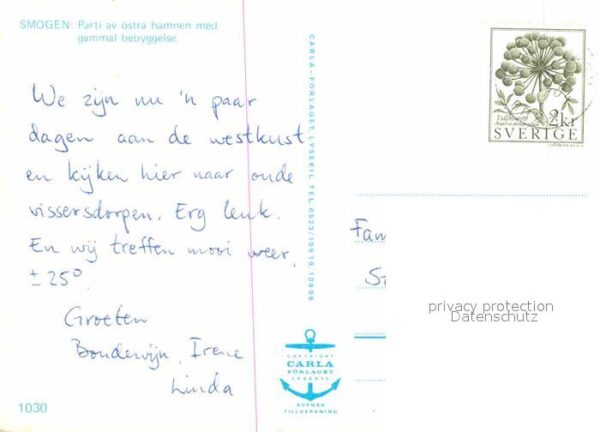 SMOGEN: Parti av östra hamnen med
gammal bebyggelse.
We zijn nu 'n paar
dagen aan de westkust
en kijken hier naar oude
vissersdorpen. Erg leuk.
En wij treffen mooi weer,
± 25°
Groeten
Boudewijn, Irene
Linda
1030
CARLA-FÖRLAGET, LYSEKIL TEL. 0523/10919, 10909
COPYRIGHT
CARLA
FÖRLAGET
LYSEKIL
SVENSK
TILLVERKNING
2kr
SVERIGE
Fam
privacy protection
Datenschutz